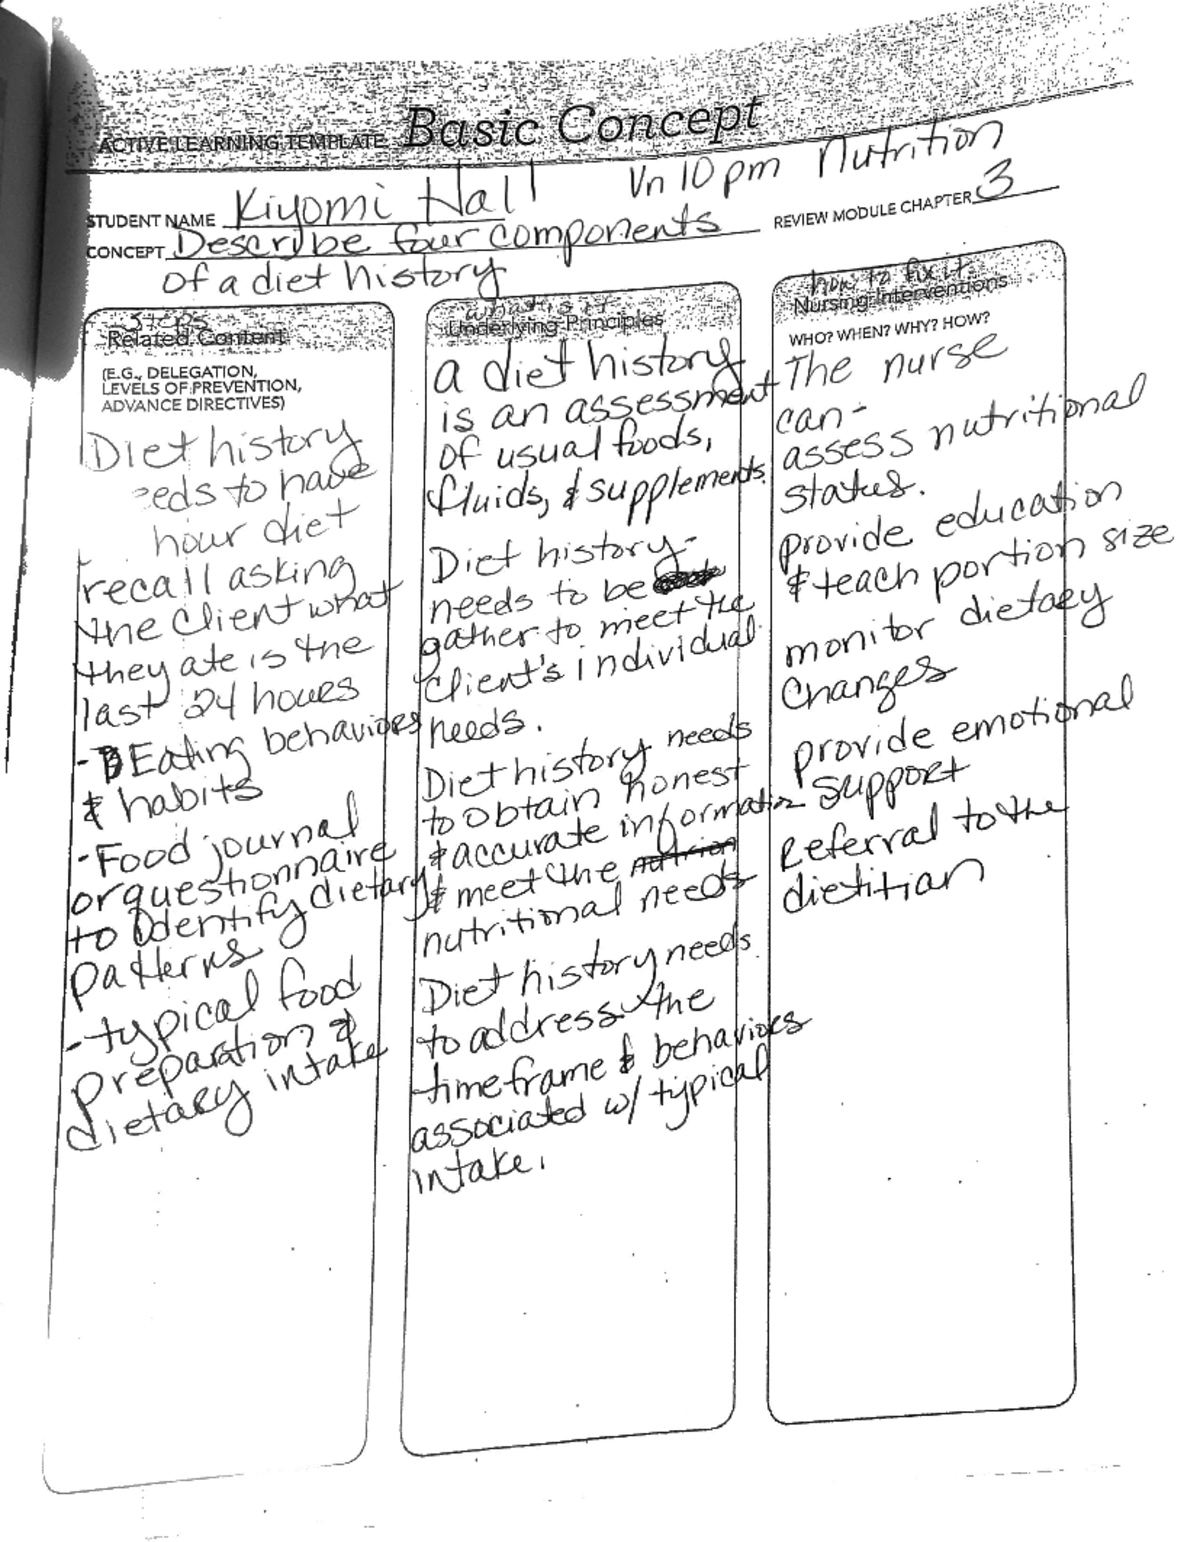 ACTIVE LEARNING TEMPLATE: Basic Concept
Vn 10 pm Nutrition
STUDENT NAME Kiyomi Hall
CONCEPT Describe four components
of a diet history
REVIEW MODULE CHAPTER 3
steps
Related Content
(E.G., DELEGATION,
LEVELS OF PREVENTION,
ADVANCE DIRECTIVES)
Diet history
eeds to have
hour diet
recall asking
the client what
they ate is the
last 24 hours
- Eating behaviors
& habits
- Food journal
or questionnaire
to identify dietary
patterns
- typical food
preparation &
dietary intake
what is it
Underlying Principles
a diet history
is an assessment
of usual foods,
fluids, & supplements.
Diet history-
needs to be
gather to meet the
client's individual
needs.
Diet history needs
to obtain honest
& accurate information
& meet the nutrion
nutritional needs
Diet history needs
to address the
time frame & behaviors
associated w/ typical
intake.
how to fix it
Nursing Interventions
WHO? WHEN? WHY? HOW?
The nurse
can-
assess nutritional
status.
provide education
& teach portion size
monitor dietary
changes
provide emotional
support
Referral to the
dietitian